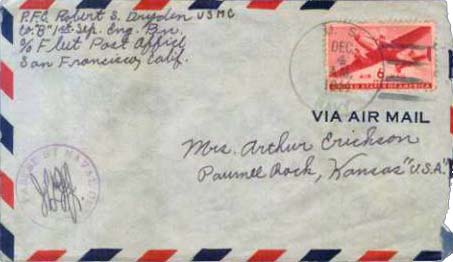 P.F.C. Robert S. Dryden USMC
Co. "B" 1st Sep. Eng. Bn.
c/o Fleet Post Office
San Francisco, Calif.
U.S.
DEC
4
AIR 6¢
UNITED STATES OF AMERICA
VIA AIR MAIL
PASSED BY NAVAL
Mrs. Arthur Erickson
Pawnee Rock, Kansas "U.S.A."